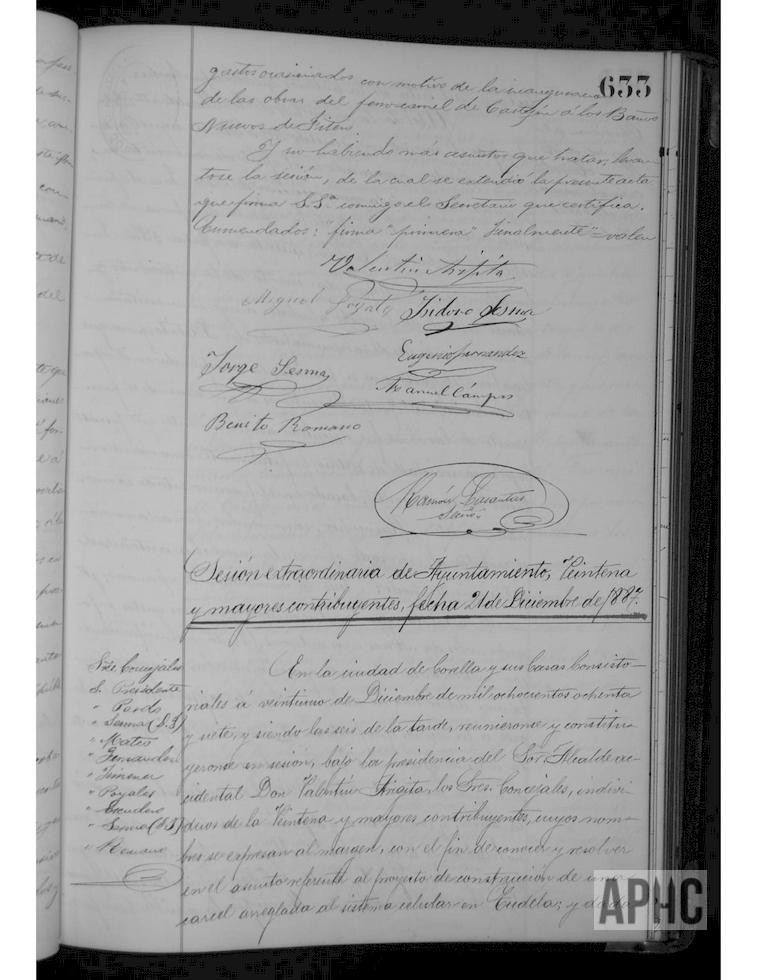 633
gastos ocasionados con motivo de la inauguracion
de las obras del ferro-carril de Castejón á los Baños
Nuevos de Fitero.
Y no habiendo más asuntos que tratar, levan
tose la sesión, de la cual se extendió la presente acta
que firma S.Sª conmigo el Secretario que certifica.
Enmendados: "firma" "primera" Finalmente"=valen
Valentín Arigita
Miguel Poyales Isidoro Sesma
Jorge Sesma Eugenio Fernandez
Manuel Campos
Benito Romano
Ramón
Srio.
Sesión extraordinaria de Ayuntamiento, Veintena
y mayores contribuyentes, fecha 21 de Diciembre de 1887.
Sres Concejales
S. Presidente
" Pardo
" Sesma (D. I)
" Mateo
" Fernandez
" Jimenez
" Poyales
" Escudero
" Sesma (D. J)
" Romano
En la ciudad de Corella y sus Casas Consisto-
riales á veintiuno de Diciembre de mil ochocientos ochenta
y siete, y siendo las seis de la tarde, reunieronse y constitu
yeronse en sesión, bajo la presidencia del Sor Alcalde ac-
cidental Don Valentín Arigita, los Sres. Concejales, indivi-
duos de la Veintena y mayores contribuyentes, cuyos nom-
bres se expresan al margen, con el fin de conocer y resolver
en el asunto referente al proyecto de construcción de una
carcel arreglada al sistema celular en Tudela; y dada
APHC